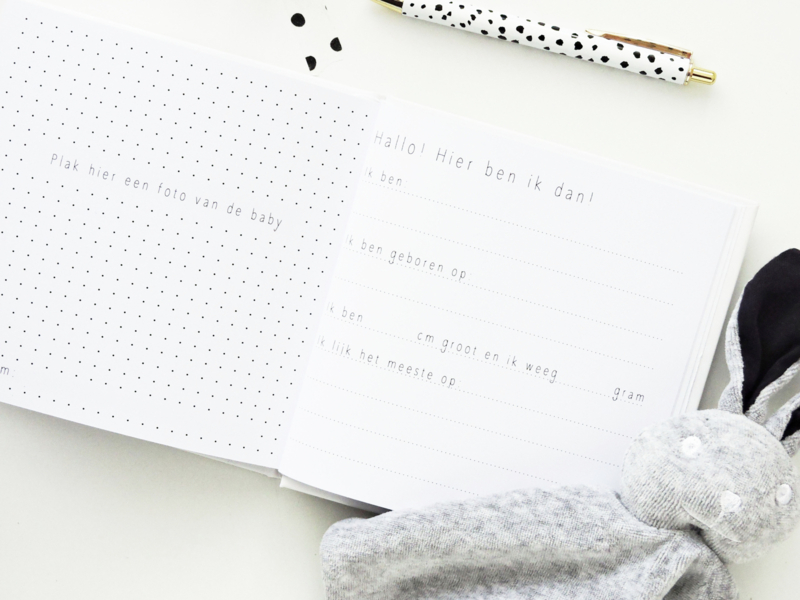 Plak hier een foto van de baby
m
Hallo! Hier ben ik dan!
ik ben
ik ben geboren op
ik ben cm groot en ik weeg gram
ik lijk het meeste op